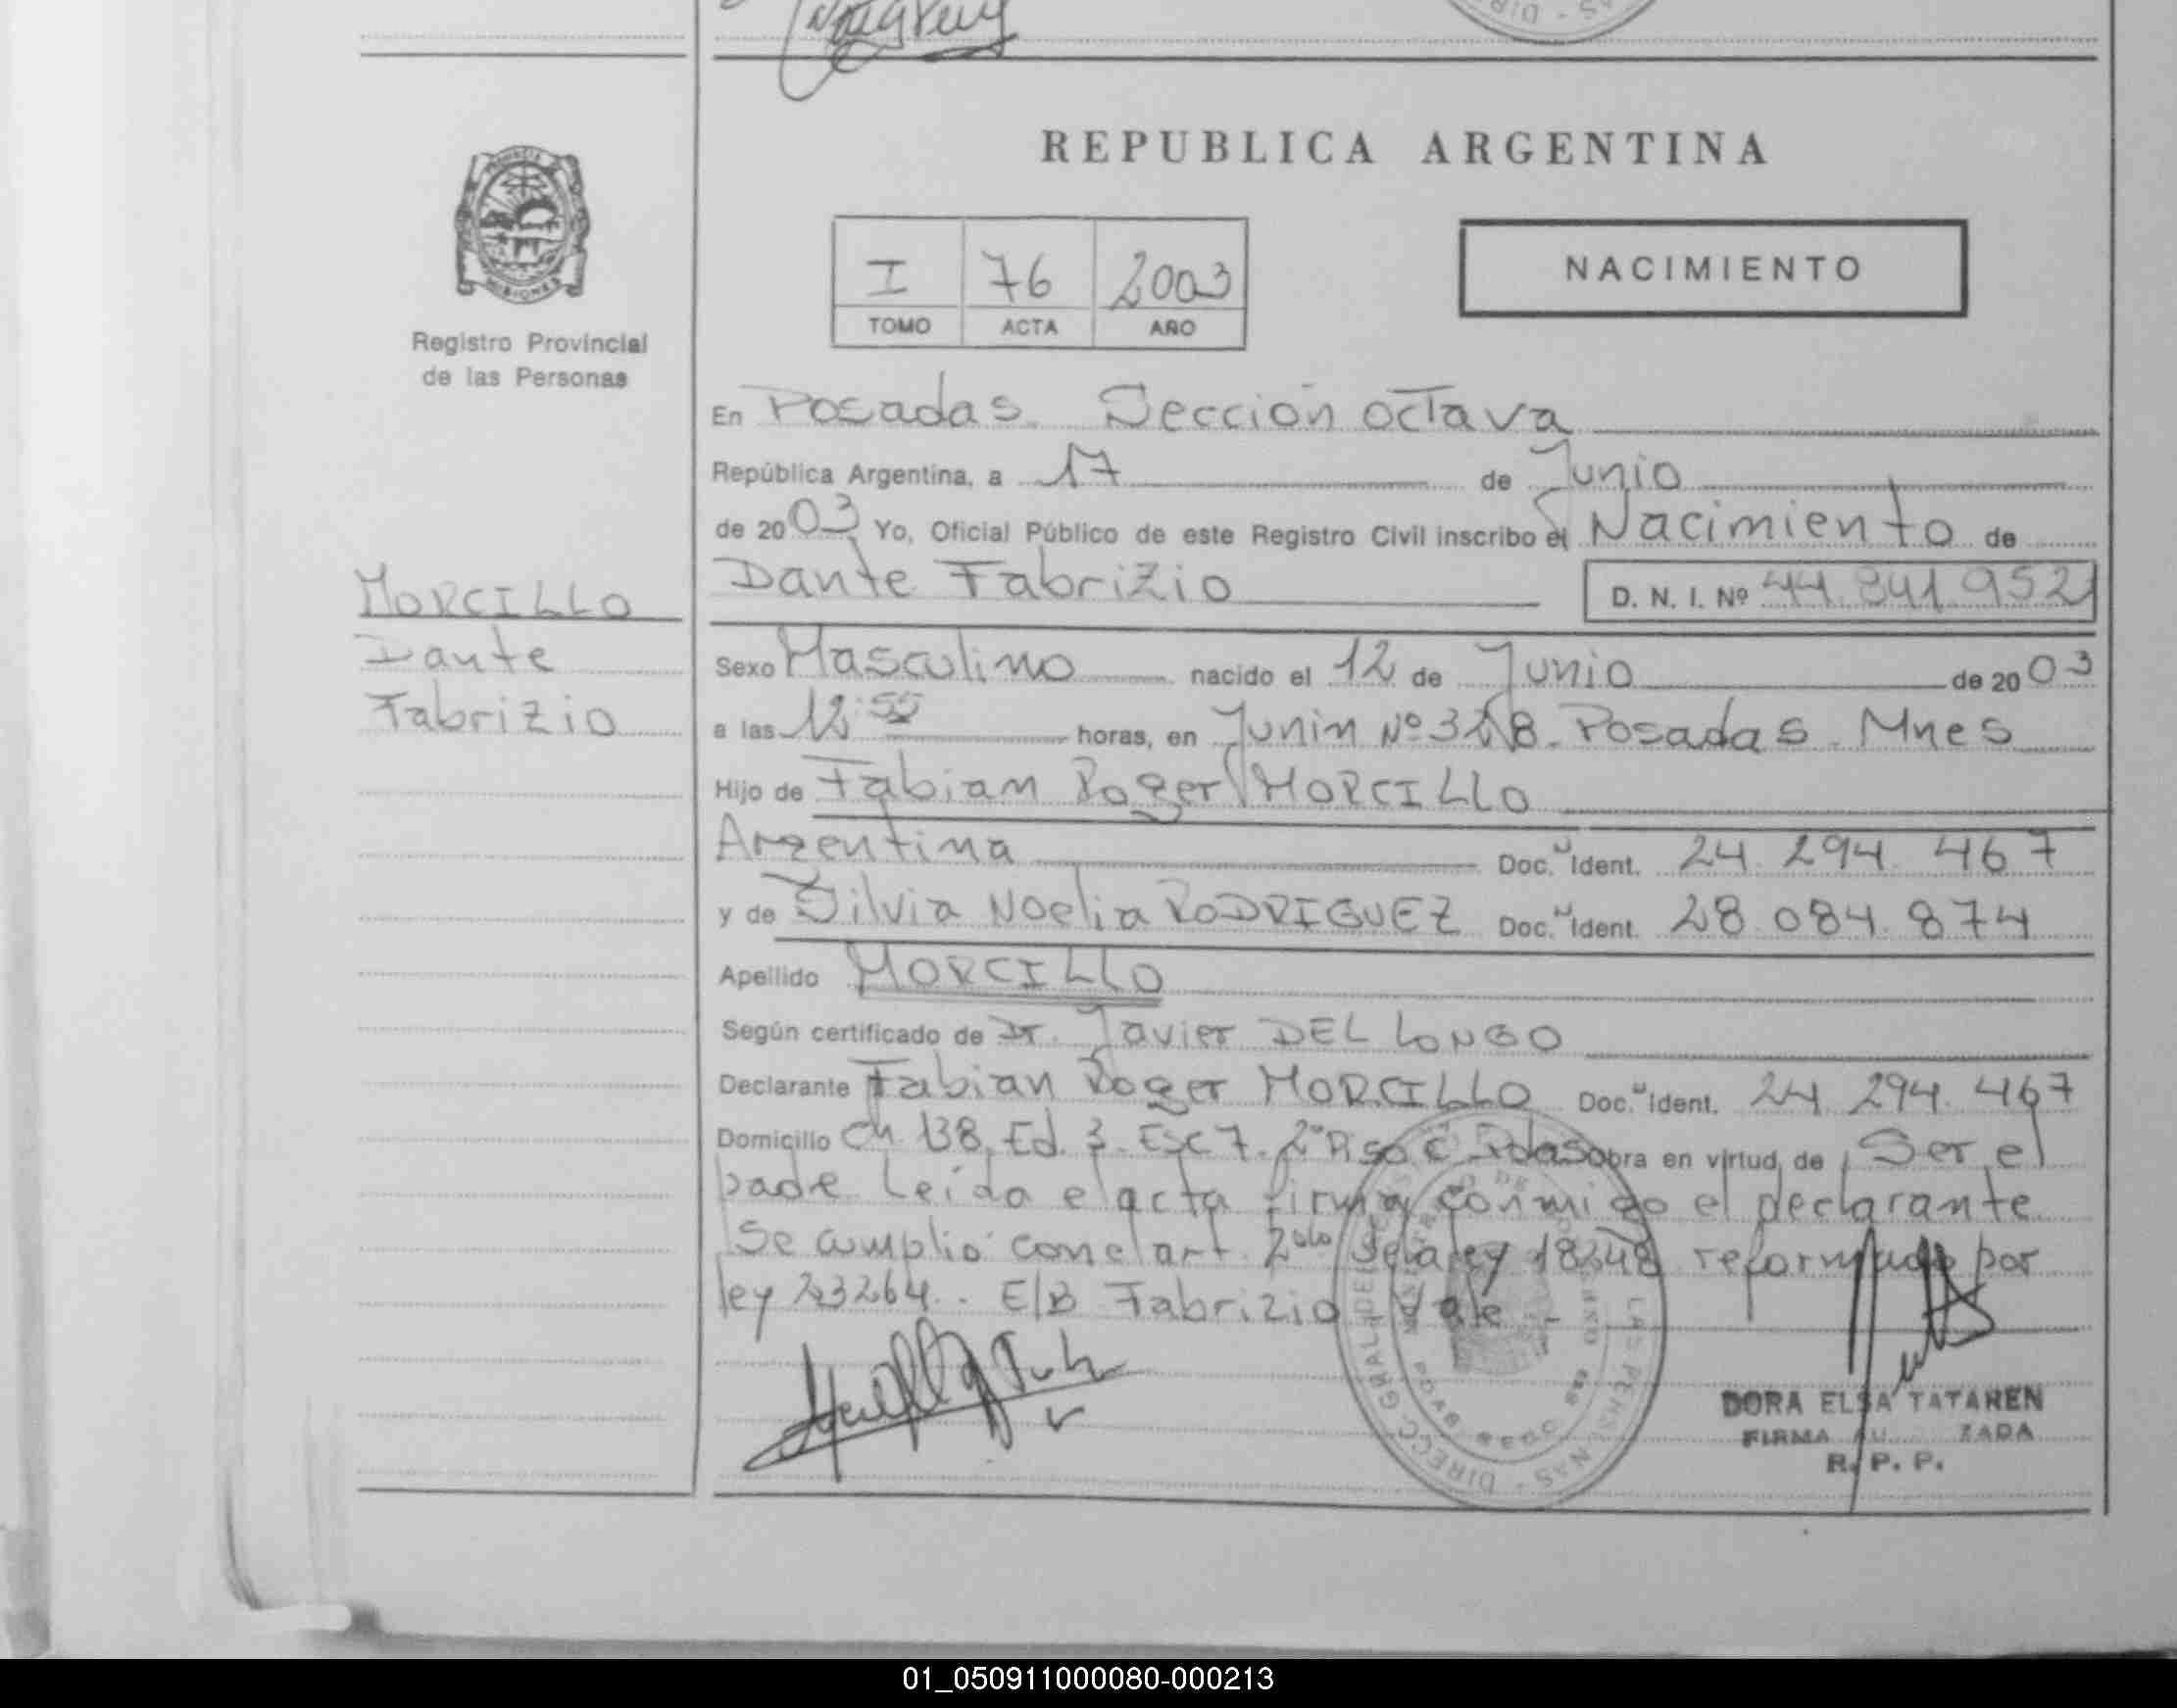 REPUBLICA ARGENTINA
NACIMIENTO
I 76 2003
TOMO ACTA AÑO
Registro Provincial
de las Personas
MISIONES
MORCILLO
Dante
Fabrizio
En Posadas. Sección octava
República Argentina, a 17 de Junio
de 2003 Yo, Oficial Público de este Registro Civil inscribo el Nacimiento de
Dante Fabrizio D. N. I. Nº 44.841.952
Sexo Masculino nacido el 12 de Junio de 2003
a las 12:55 horas, en Junin Nº Posadas. Mnes
Hijo de Fabian Roger MORCILLO
Argentina Doc. Ident. 24.294.467
y de Silvia Noelia RODRIGUEZ Doc. Ident. 28.084.874
Apellido MORCILLO
Según certificado de Dr. Javier DEL LONGO
Declarante Fabian Roger MORCILLO Doc. Ident. 24.294.467
Domicilio Ch 138. Ed. 3. Esc 7. 2º Piso C Pdas obra en virtud de Ser el
padre Leída el acta firma conmigo el declarante
Se cumplio con el art. 2do de la ley 18248 reformado por
ley 23264.. E/B Fabrizio Vale -
DORA ELSA TATAREN
FIRMA AU ZADA
R. P. P.
01_050911000080-000213